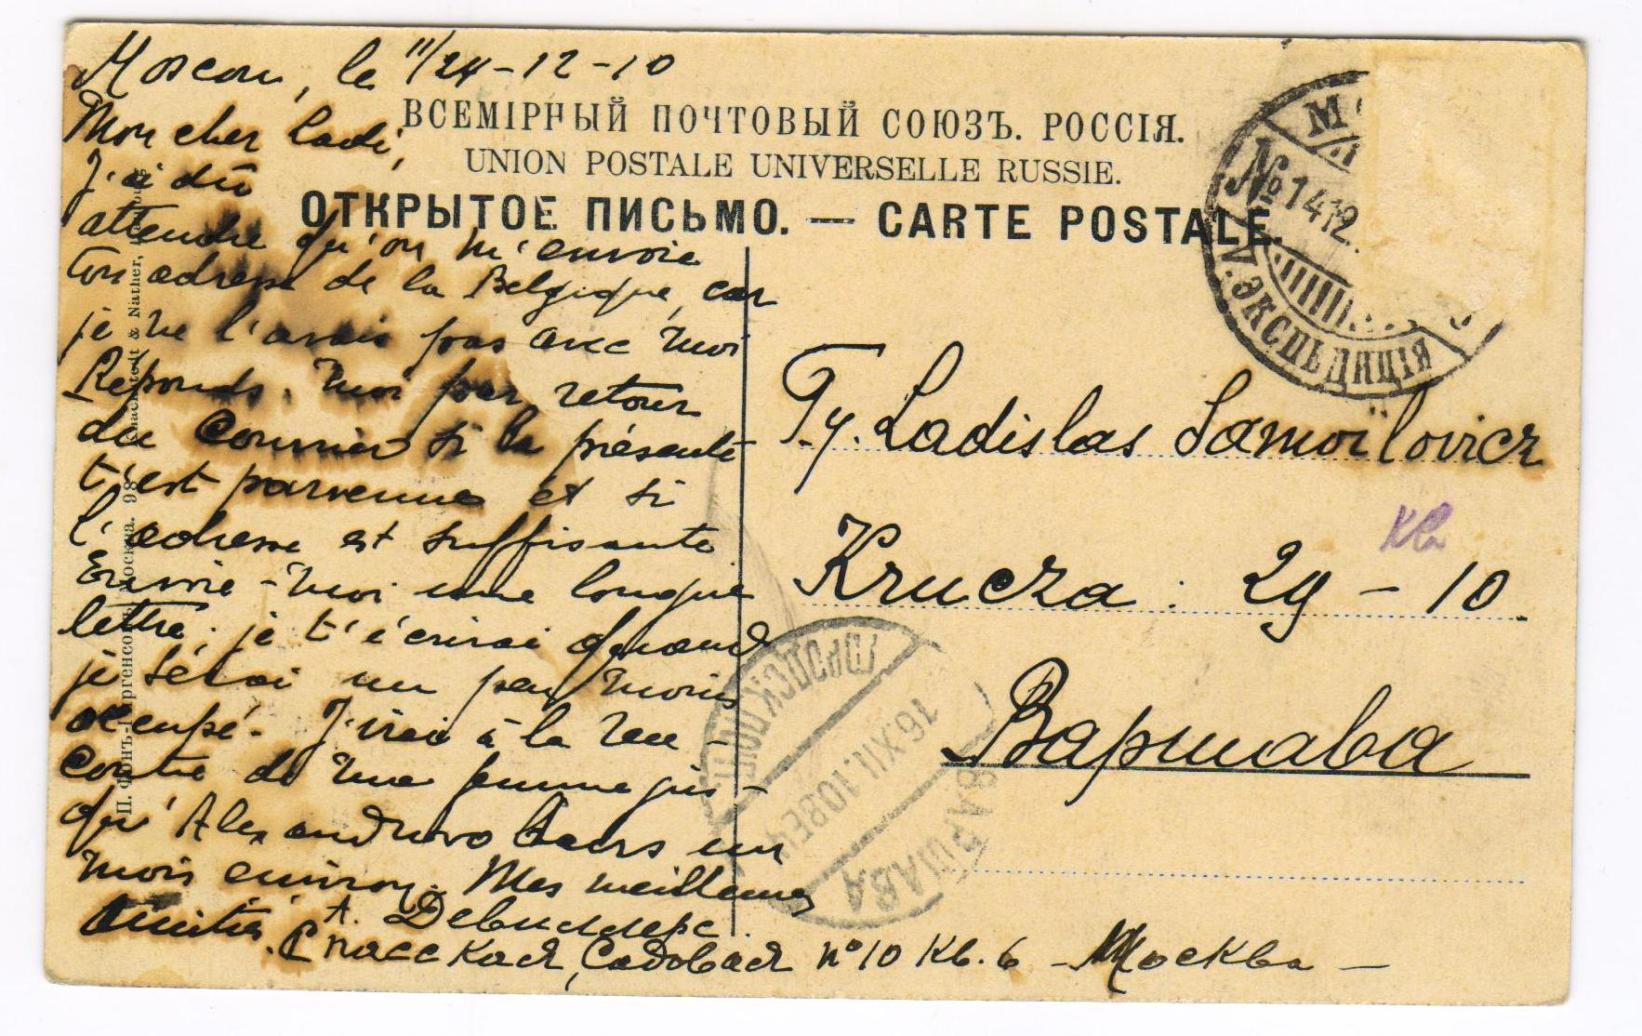 Moscou, le 11/24-12-10
Mon cher Ladi,
J'ai dû
attendre qu'on m'envoie
ton adresse de la Belgique, car
je ne l'avais pas avec moi
Réponds-moi par retour
du Courrier si la présente
t'est parvenue et si
l'adresse est suffisante
Envoie-moi une longue
lettre. je t'écrirai quand
je serai un peu moins
occupé. J'irai à la ren-
contre de ma femme jus-
qu'Alexandrovo dans un
mois environ. Mes meilleures
Amitiés. А. Девиллерс.
Спасская, Садовая n° 10 Кв. 6 - Москва -
ВСЕМІРНЫЙ ПОЧТОВЫЙ СОЮЗЪ. РОССІЯ.
UNION POSTALE UNIVERSELLE RUSSIE.
ОТКРЫТОЕ ПИСЬМО. — CARTE POSTALE.
№ 14 12.
ЭКСПЕДИЦІЯ
Ladislas Samoïlovicz
кв
Krucza : 29 - 10.
Варшава
16.XII.10 ВЕЧ
ВАРШАВА
& Nather,
Москва. 98